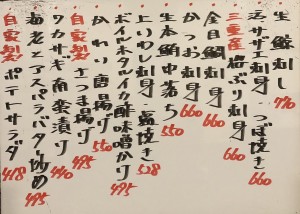 生鯨刺し 770
活サザエ刺身・つぼ焼き 660
三重産 梅ぶり刺身 660
金目鯛刺身 660
かつお刺身 660
生本鮪中落ち 550
上いわし刺身・塩焼き 528
ボイルホタルイカ酢味噌かけ 495
かわり唐揚げ 550
自家製 さつま揚げ 495
ワカサギ南蛮漬け 440
海老とアスパラバター炒め 495
自家製 ポテトサラダ 418